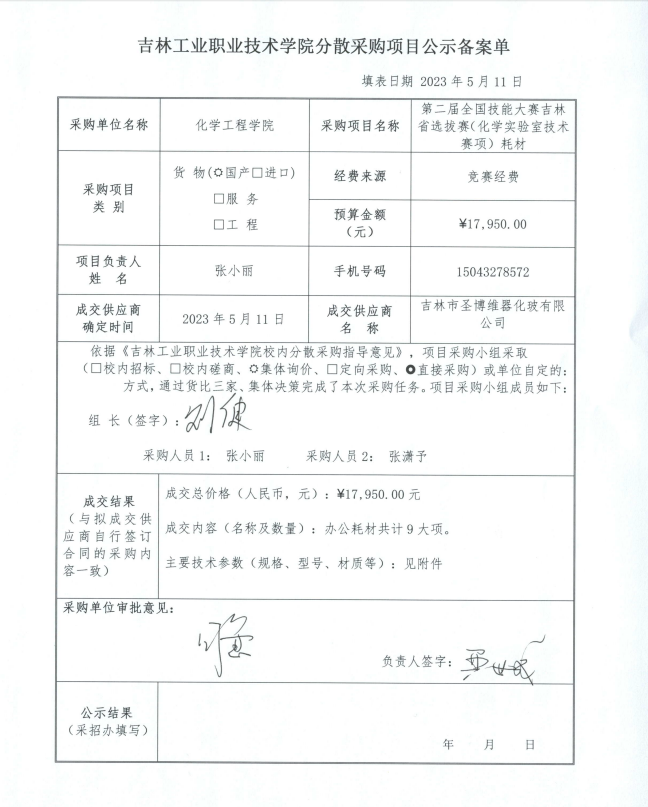 吉林工业职业技术学院分散采购项目公示备案单
填表日期 2023 年 5 月 11 日
采购单位名称
化学工程学院
采购项目名称
第二届全国技能大赛吉林
省选拔赛(化学实验室技术
赛项) 耗材
采购项目
类 别
货 物(✿国产□进口)
□服 务
□工 程
经费来源
竞赛经费
预算金额
（元）
¥17,950.00
项目负责人
姓 名
张小丽
手机号码
15043278572
成交供应商
确定时间
2023 年 5 月 11 日
成交供应商
名 称
吉林市圣博维器化玻有限
公司
依据《吉林工业职业技术学院校内分散采购指导意见》，项目采购小组采取
（□校内招标、□校内磋商、✿集体询价、□定向采购、●直接采购）或单位自定的:
方式，通过货比三家、集体决策完成了本次采购任务。项目采购小组成员如下:
组 长（签字）: 刘健
采购人员 1： 张小丽 采购人员 2： 张潇予
成交结果
（与拟成交供
应商自行签订
合同的采购内
容一致）
成交总价格（人民币，元）: ¥17,950.00 元
成交内容（名称及数量）: 办公耗材共计 9 大项。
主要技术参数（规格、型号、材质等）: 见附件
采购单位审批意见:
负责人签字:
公示结果
（采招办填写）
年 月 日